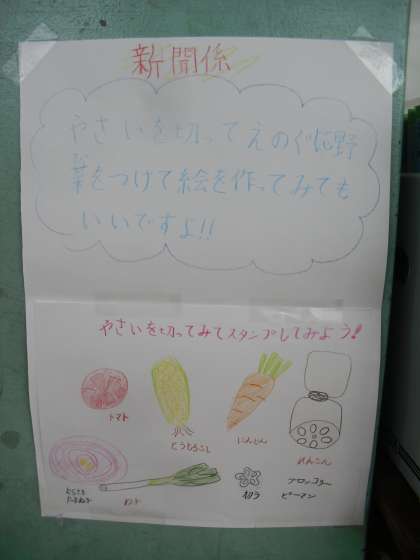 新聞係
やさいを切ってえのぐに野
菜をつけて絵を作ってみても
いいですよ!!
やさいを切ってみてスタンプしてみよう!
トマト
とうもろこし
にんじん
れんこん
たまねぎ
ねぎ
オクラ
ブロッコリー
ピーマン